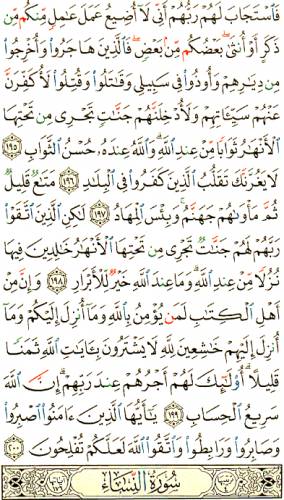 فَٱسْتَجَابَ لَهُمْ رَبُّهُمْ أَنِّي لَآ أُضِيعُ عَمَلَ عَٰمِلٍ مِّنكُم مِّن
ذَكَرٍ أَوْ أُنثَىٰ ۖ بَعْضُكُم مِّنۢ بَعْضٍ ۖ فَٱلَّذِينَ هَاجَرُوا۟ وَأُخْرِجُوا۟
مِن دِيَٰرِهِمْ وَأُوذُوا۟ فِي سَبِيلِي وَقَٰتَلُوا۟ وَقُتِلُوا۟ لَأُكَفِّرَنَّ
عَنْهُمْ سَيِّـَٔاتِهِمْ وَلَأُدْخِلَنَّهُمْ جَنَّٰتٍ تَجْرِي مِن تَحْتِهَا
ٱلْأَنْهَٰرُ ثَوَابًا مِّنْ عِندِ ٱللَّهِ ۗ وَٱللَّهُ عِندَهُۥ حُسْنُ ٱلثَّوَابِ ١٩٥
لَا يَغُرَّنَّكَ تَقَلُّبُ ٱلَّذِينَ كَفَرُوا۟ فِي ٱلْبِلَٰدِ ١٩٦ مَتَٰعٌ قَلِيلٌ
ثُمَّ مَأْوَىٰهُمْ جَهَنَّمُ ۚ وَبِئْسَ ٱلْمِهَادُ ١٩٧ لَٰكِنِ ٱلَّذِينَ ٱتَّقَوْا۟
رَبَّهُمْ لَهُمْ جَنَّٰتٌ تَجْرِي مِن تَحْتِهَا ٱلْأَنْهَٰرُ خَٰلِدِينَ فِيهَا
نُزُلًا مِّنْ عِندِ ٱللَّهِ ۗ وَمَا عِندَ ٱللَّهِ خَيْرٌ لِّلْأَبْرَارِ ١٩٨ وَإِنَّ مِنْ
أَهْلِ ٱلْكِتَٰبِ لَمَن يُؤْمِنُ بِٱللَّهِ وَمَآ أُنزِلَ إِلَيْكُمْ وَمَآ
أُنزِلَ إِلَيْهِمْ خَٰشِعِينَ لِلَّهِ لَا يَشْتَرُونَ بِـَٔايَٰتِ ٱللَّهِ ثَمَنًا
قَلِيلًا ۗ أُو۟لَٰٓئِكَ لَهُمْ أَجْرُهُمْ عِندَ رَبِّهِمْ ۗ إِنَّ ٱللَّهَ
سَرِيعُ ٱلْحِسَابِ ١٩٩ يَٰٓأَيُّهَا ٱلَّذِينَ ءَامَنُوا۟ ٱصْبِرُوا۟
وَصَابِرُوا۟ وَرَابِطُوا۟ وَٱتَّقُوا۟ ٱللَّهَ لَعَلَّكُمْ تُفْلِحُونَ ٢٠٠
سُورَةُ ٱلنِّسَاءِ